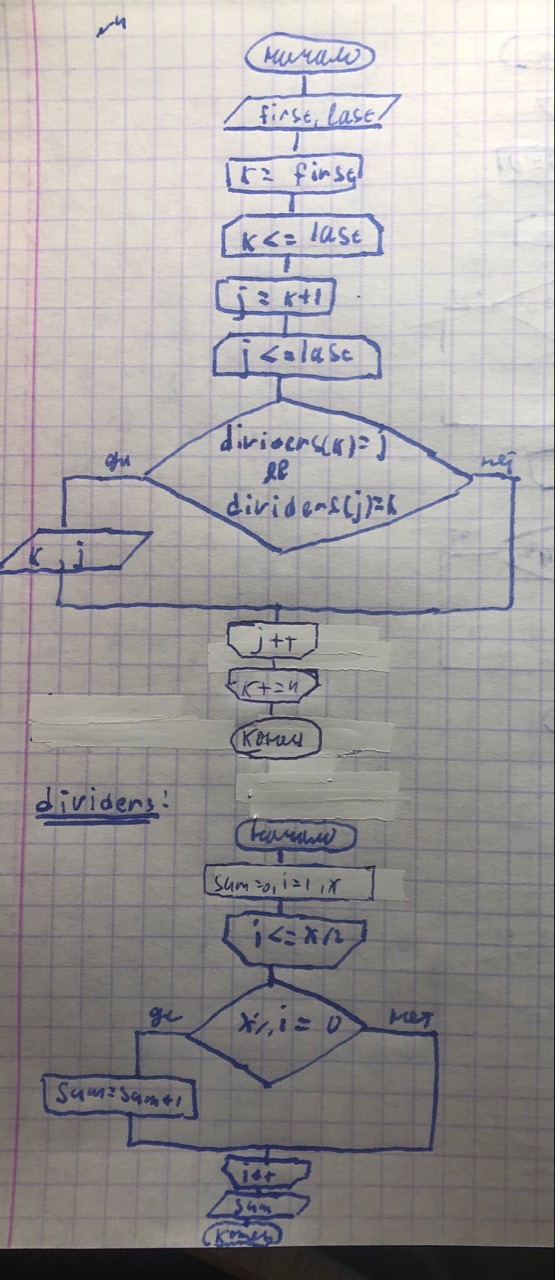 начало
first, last
k = first
k <= last
j = k+1
j <= last
dividers(k)= j
да
&&
нет
dividers(j)=k
k, j
j++
конец
dividers:
начало
sum=0, i=1, x
i <= x/2
да
x%i = 0
нет
i++
sum
конец